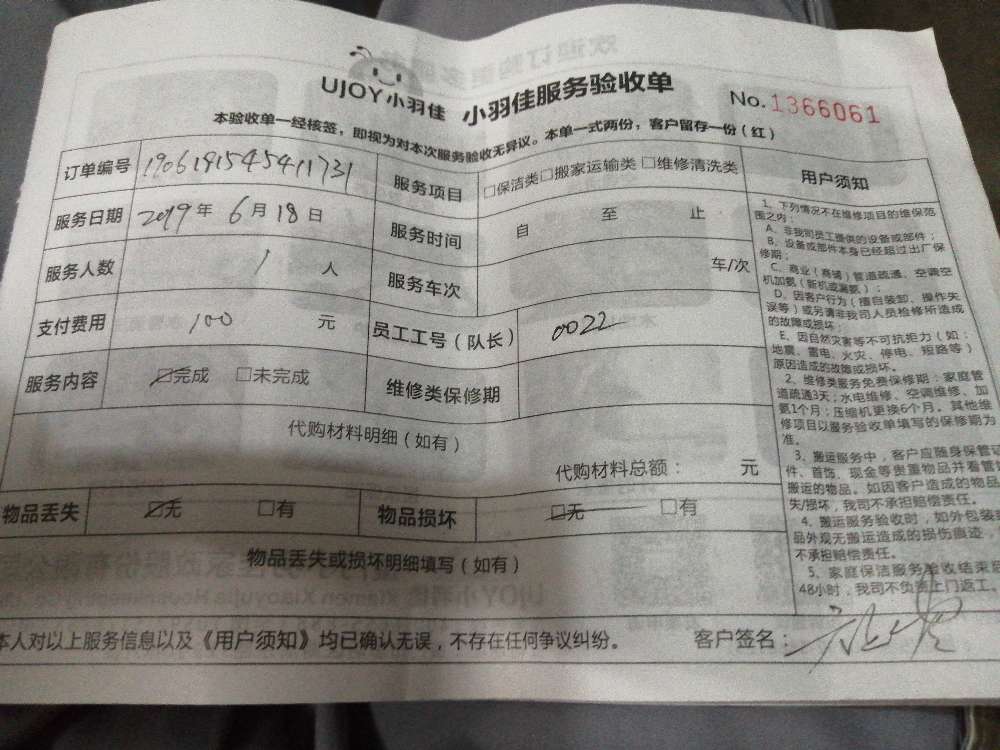 UJOY小羽佳 小羽佳服务验收单
No.1366061
本验收单一经核签，即视为对本次服务验收无异议。本单一式两份，客户留存一份（红）
订单编号 190618154541173​1 服务项目 □保洁类□搬家运输类□维修清洗类
服务日期 2019年6月18日 服务时间 自 至 止
服务人数 1 人 服务车次 车/次
支付费用 100 元 员工工号（队长） 0022
服务内容 ☑完成 □未完成 维修类保修期
代购材料明细（如有）
代购材料总额： 元
物品丢失 ☑无 □有 物品损坏 ☑无 □有
物品丢失或损坏明细填写（如有）
用户须知
1、下列情况不在维修项目的维保范
围之内：
A、非我司员工提供的设备或部件；
B、设备或部件本身已经超过出厂保
修期；
C、商业（商铺）管道疏通、空调空
机加氨（新机或漏氨）；
D、因客户行为（擅自装卸、操作失
误等）或另请非我司人员检修所造成
的故障或损坏；
E、因自然灾害等不可抗拒力（如：
地震、雷电、火灾、停电、短路等）
原因造成的故障或损坏。
2、维修类服务免费保修期：家庭管
道疏通3天；水电维修、空调维修、加
氨1个月；压缩机更换6个月。其他维
修项目以服务验收单填写的保修期为
准。
3、搬运服务中，客户应随身保管证
件、首饰、现金等贵重物品并看管
搬运的物品。如因客户造成的物品
失/损坏，我司不承担赔偿责任。
4、搬运服务验收时，如外包装
品外观无搬运造成的损伤痕迹，
不承担赔偿责任。
5、家庭保洁服务验收结束后
48小时，我司不负责上门返工。
本人对以上服务信息以及《用户须知》均已确认无误，不存在任何争议纠纷。 客户签名：